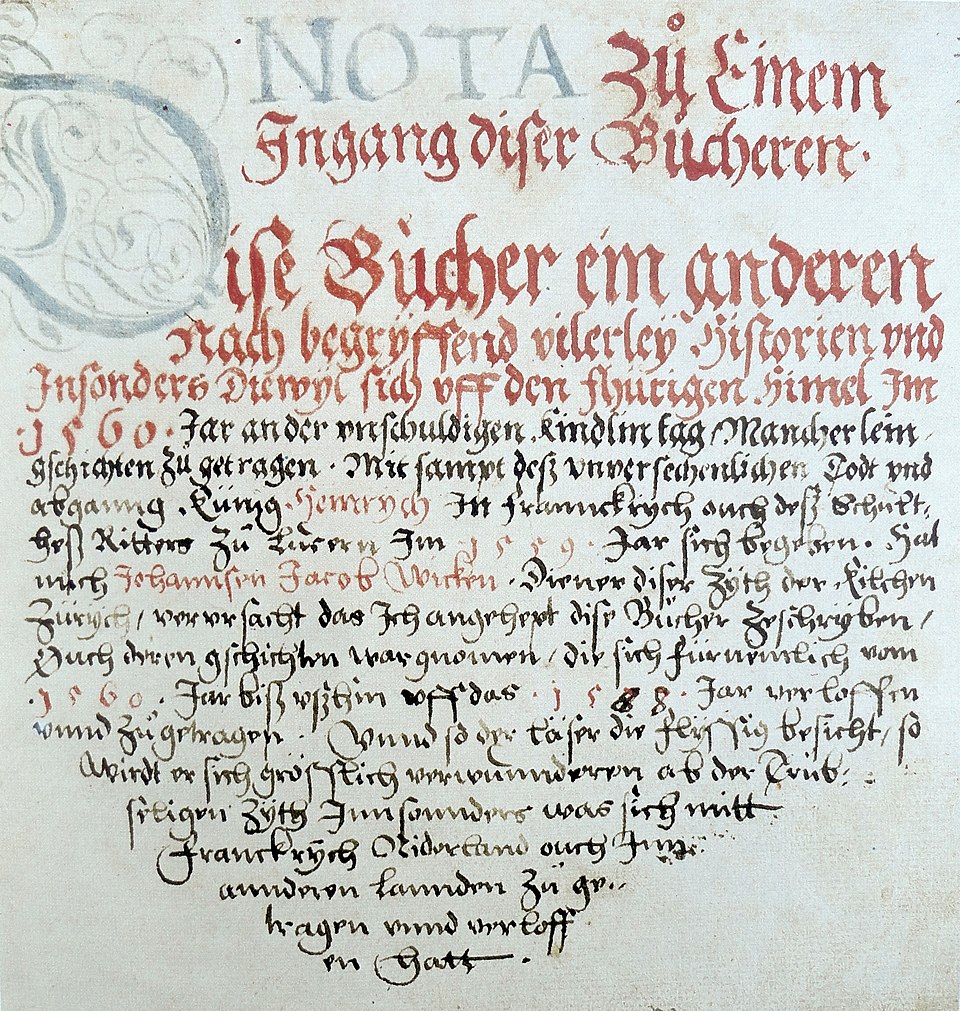 NOTA Zů Einem
Ingang diser Bücheren.
Dise Bücher ein anderen
Nach begryffend vilerley Historien vnd
Insonders Diewyl sich vff den fhürigen Himel Im
.1560. Jar an der vnschuldigen Kindlin tag / Mancherlein
gschichten Zů getragen. Mit sampt deß vnversechenlichen Todt vnd
abganng Künig Heinrych In Franckrych ouch deß Schult,
heß Ritters Zů Lucern Im 1559. Jar sich begeben. Hat
mich Johannsen Jacob Wicken. Diener diser Zyth der Kilchen
Zürych / vervrsacht das Ich angehept dise Bücher Zeschryben /
Ouch deren gschichten war gnomen / die sich fürnemlich vom
.1560. Jar biß vßhin vff das .1588. Jar verloffen
vnnd Zůgetragen. Vnnd so der Läser die flyssig besicht, so
Wirdt er sich grösslich verwunnderen ab der Trüb,
seligen Zyth Innsonnders was sich mitt
Franckrych Niderland ouch Inn
annderen Lannden Zů ge,
tragen vnnd verloff
en Hatt.